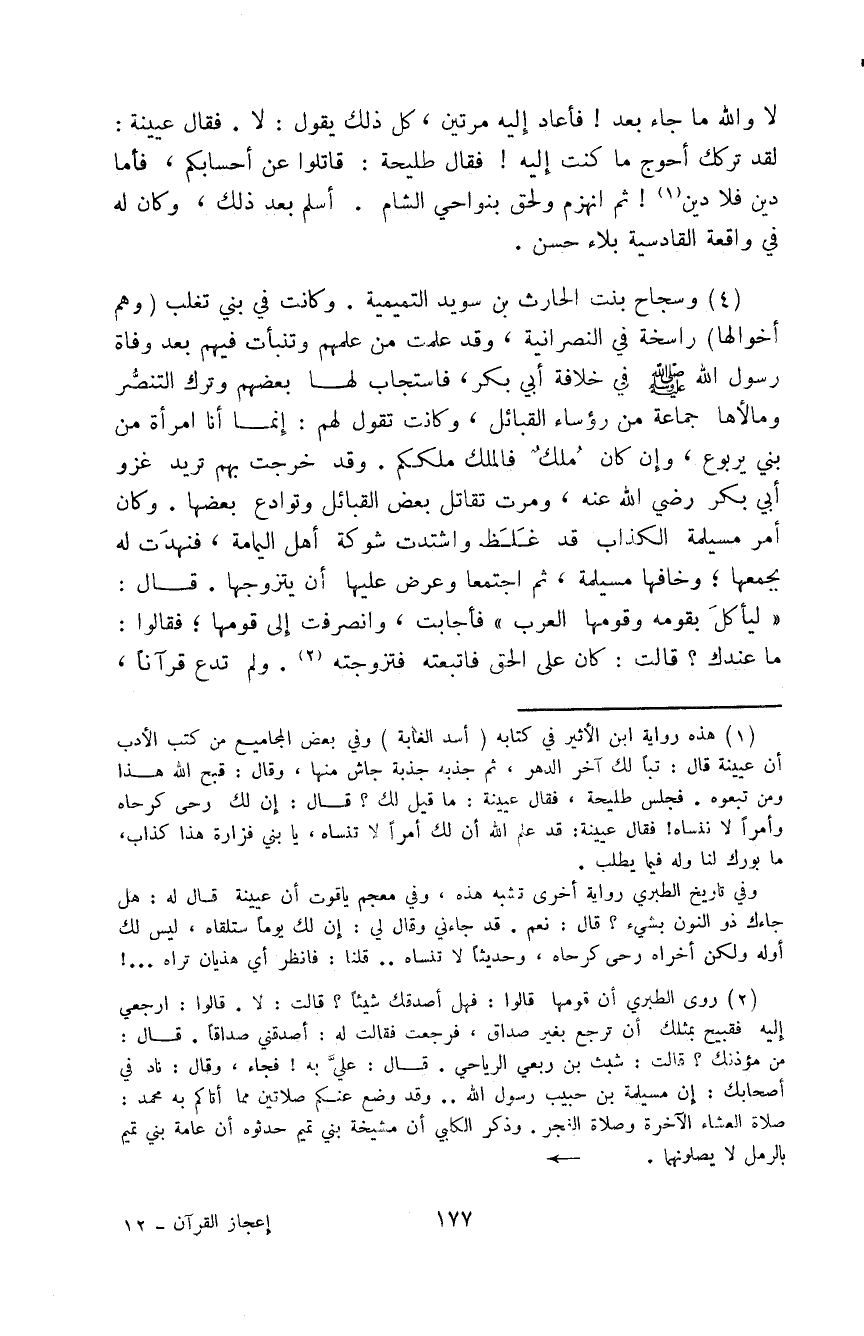 لا والله ما جاء بعد ! فأعاد إليه مرتين ، كل ذلك يقول : لا . فقال عيينة :
لقد تركك أحوج ما كنت إليه ! فقال طليحة : قاتلوا عن أحسابكم ، فأما
دين فلا دين(١) ! ثم انهزم ولحق بنواحي الشام . أسلم بعد ذلك ، وكان له
في واقعة القادسية بلاء حسن .
(٤) وسجاح بنت الحارث بن سويد التميمية . وكانت في بني تغلب ( وهم
أخوالها) راسخة في النصرانية ، وقد علمت من علمهم وتنبأت فيهم بعد وفاة
رسول الله ﷺ في خلافة أبي بكر، فاستجاب لهـا بعضهم وترك التنصُّر
ومالأها جماعة من رؤساء القبائل ، وكانت تقول لهم : إنمـا أنا امرأة من
بني يربوع ، وإن كان مُلكٌ فالملك ملككم . وقد خرجت بهم تريد غزو
أبي بكر رضي الله عنه ، ومرت تقاتل بعض القبائل وتوادع بعضها . وكان
أمر مسيلمة الكذاب قد غَلَظَ واشتدت شوكة أهل اليمامة ، فنهدَت له
بجمعها ؛ وخافها مسيلمة ، ثم اجتمعا وعرض عليها أن يتزوجها . قـال :
« ليأكلَ بقومه وقومها العرب » فأجابت ، وانصرفت إلى قومها ؛ فقالوا :
ما عندك ؟ قالت : كان على الحق فاتبعته فتزوجته (٢) . ولم تدع قرآناً ،
(١) هذه رواية ابن الأثير في كتابه ( أسد الغابة ) وفي بعض المجاميع من كتب الأدب
أن عيينة قال : تباً لك آخر الدهر ، ثم جذبه جذبة جاش منها ، وقال : قبح الله هـذا
ومن تبعوه . فجلس طليحة ، فقال عيينة : ما قيل لك ؟ قـال : إن لك رحى كرحاه
وأمراً لا ننساه! فقال عيينة: قد علم الله أن لك أمراً لا تنساه ، يا بني فزارة هذا كذاب،
ما بورك لنا وله فيما يطلب .
وفي تاريخ الطبري رواية أخرى تشبه هذه ، وفي معجم ياقوت أن عيينة قـال له : هل
جاءك ذو النون بشيء ؟ قال : نعم . قد جاءني وقال لي : إن لك يوماً ستلقاه ، ليس لك
أوله ولكن أخراه رحى كرحاه ، وحديثاً لا تنساه .. قلنا : فانظر أي هذيان تراه ...!
(٢) روى الطبري أن قومها قالوا : فهل أصدقك شيئاً ؟ قالت : لا . قالوا : ارجعي
إليه فقبيح بمثلك أن ترجع بغير صداق ، فرجعت فقالت له : أصدقني صداقاً . قـال :
من مؤذنك ؟ قالت : شبث بن ربعي الرياحي . قـال : عليَّ به ! فجاء ، وقال : ناد في
أصحابك : إن مسيلمة بن حبيب رسول الله .. وقد وضع عنكم صلاتين مما أتاكم به محمد :
صلاة العشاء الآخرة وصلاة الفجر . وذكر الكلبي أن مشيخة بني تميم حدثوه أن عامة بني تميم
بالرمل لا يصلونهما . ←
١٧٧
إعجاز القرآن - ١٢